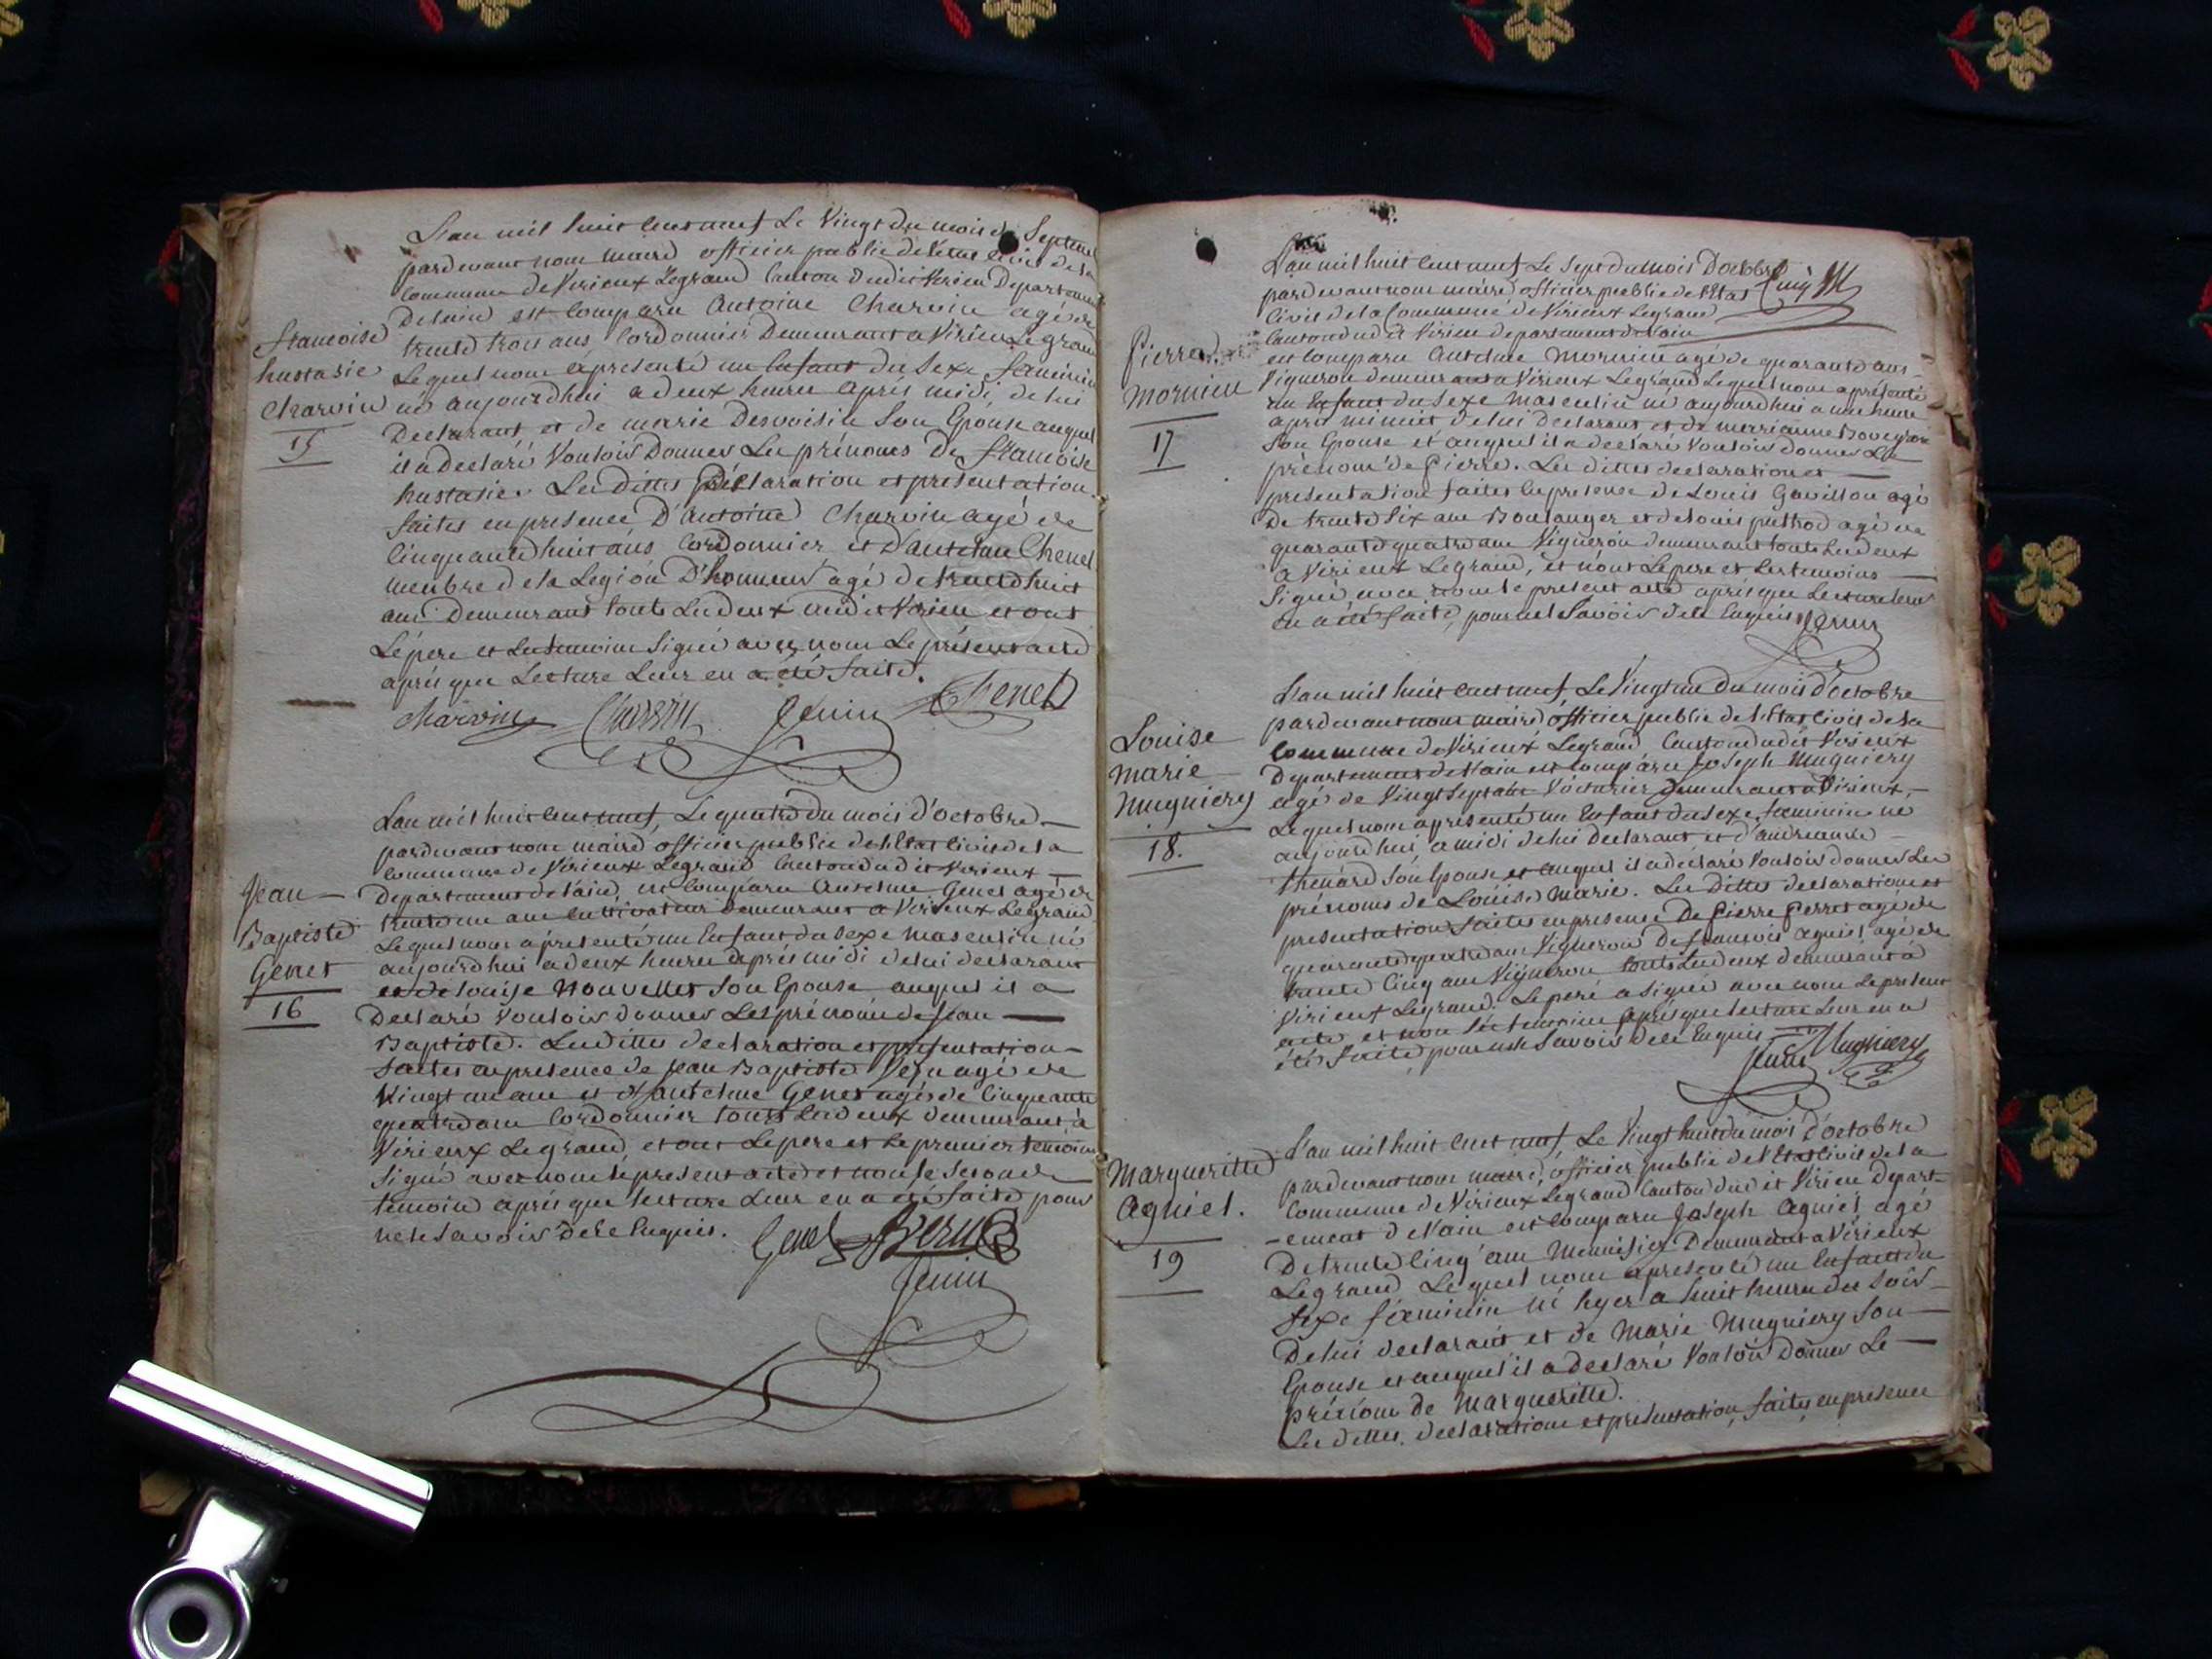 L'an mil huit cent neuf Le Vingt du mois de Septembre
pardevant nous maire officier public de l'état civil de la
Commune de Virieux Legrand Canton dudit Virieu Departement
Delain est Comparu Antoine Charvin agé de
trente trois ans Cordonnier Demeurant a Virieu Le grand
Lequel nous a présenté un Enfant du Sexe féminin
né aujourdhui a deux heures après midi, de lui
Declarant et de marie Desvoisin Son Epouse auquel
il a declaré Vouloir Donner Les prénoms De francoise
hustasie. Les Dittes Déclaration et presentation
faites en presence D'antoine Charvin agé de
Cinquante huit ans Cordonnier et D'antelme Chenet
membre de la Legion D'honneur agé de trente huit
ans Demeurant touts Les deux audit Virieu et ont
Le père et Les temoins Signé avec nous Le présent acte
après que Lecture Leur en a été faite.
Charvin Charvin Jenin Chenet
francoise
hustasie
Charvin
15
L'an mil huit cent neuf, Le quatre du mois d'octobre
pardevant nous maire officier public de l'Etat civil de la
commune de Virieux Legrand Canton dudit Virieux
Departement de l'ain, est Comparu Antelme Genet agé de
trente un ans Cultivateur Demeurant a Virieux Legrand
Lequel nous a présenté un Enfant du Sexe masculin né
aujourdhui a deux heures après midi de lui declarant
et de Louise Nouvellet Son Epouse auquel il a
Declaré Vouloir donner Les prénoms de Jean
Baptiste. Les dittes declaration et presentation
faites en presence de Jean Baptiste agé de
Vingt un ans et d'antelme Genet agé de Cinquante
quatre ans Cordonnier touts Les deux demeurant à
Virieux Legrand, et ont Le pere et le premier temoin
Signé avec nous le present acte et non le Second
temoin après que lecture Leur en a été faite pour
ne le Savoir de ce Enquis. Genet
Jenin
Jean
Baptiste
Genet
16
L'an mil huit cent neuf Le Sept du mois D'octobre
pardevant nous maire officier public de l'Etat
Civil de la Commune de Virieux Legrand
Canton dudit Virieu departement de l'ain
est Comparu Antelme Mornieu agé de quarante ans
Vigneron demeurant a Virieux Legrand Lequel nous a présenté
un Enfant du Sexe Masculin né aujourdhui a une heure
après minuit de lui Declarant et de merrianne
Son Epouse et auquel il a declaré Vouloir donner Le
prénom de Pierre. Les dittes declaration et
presentation faites en presence de Louis Gavillon agé
De trente Six ans Boulanger et de Louis puthod agé de
quarante quatre ans Vigneron demeurant touts Les deux
a Virieux Legrand, et n'ont Le pere et Les temoins
Signé avec nous le present acte après que Lecture Leur
en a été faite, pour ne le Savoir de ce Enquis Jenin
Pierre
Mornieu
17
L'an mil huit cent neuf, Le Vingt un du mois d'octobre
pardevant nous maire officier public de l'Etat civil de la
Commune de Virieux Legrand Canton dudit Virieux
Departement de l'ain est comparu Joseph Mugniery
agé de Vingt Sept ans Voiturier Demeurant a Virieux,
Lequel nous a présenté un Enfant du Sexe feminin né
aujourdhui a midi de lui Declarant et d'andreanne
thenard Son Epouse et auquel il a déclaré Vouloir donner Les
prénoms de Louise Marie. Les Dittes declaration et
presentation faites en presence De Pierre Perret agé de
quarante quatre ans Vigneron De francois agniel agé de
trente Cinq ans Vigneron touts Les deux demeurant à
Virieux Legrand. Le pere a Signé avec nous Le present
acte et non Les temoins après que lecture Leur en a
été faite pour ne le Savoir de ce Enquis Mugniery
Jenin
Louise
Marie
Mugniery
18.
L'an mil huit cent neuf, Le Vingt huit du mois d'octobre
pardevant nous maire, officier public de l'Etat civil de la
Commune de Virieux Legrand Canton dudit Virieu Depart-
-ement de l'ain est Comparu Joseph Agniel agé
De trente Cinq ans Menuisier Demeurant a Virieux
Legrand Lequel nous a présenté un Enfant du
Sexe féminin né hyer a huit heures du Soir
De lui declarant et de Marie Mugniery Son
Epouse et auquel il a declaré Vouloir Donner Le
prénom de Margueritte.
Les dittes. declaration et présentation, faites en presence
Margueritte
Agniel.
19